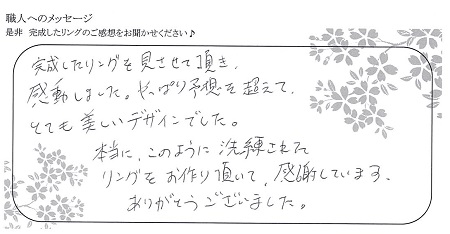 職人へのメッセージ
是非 完成したリングのご感想をお聞かせください♪
完成したリングを見させて頂き、
感動しました。やっぱり予想を超えて、
とても美しいデザインでした。
本当に、このように洗練された
リングをお作り頂いて、感謝しています。
ありがとうございました。